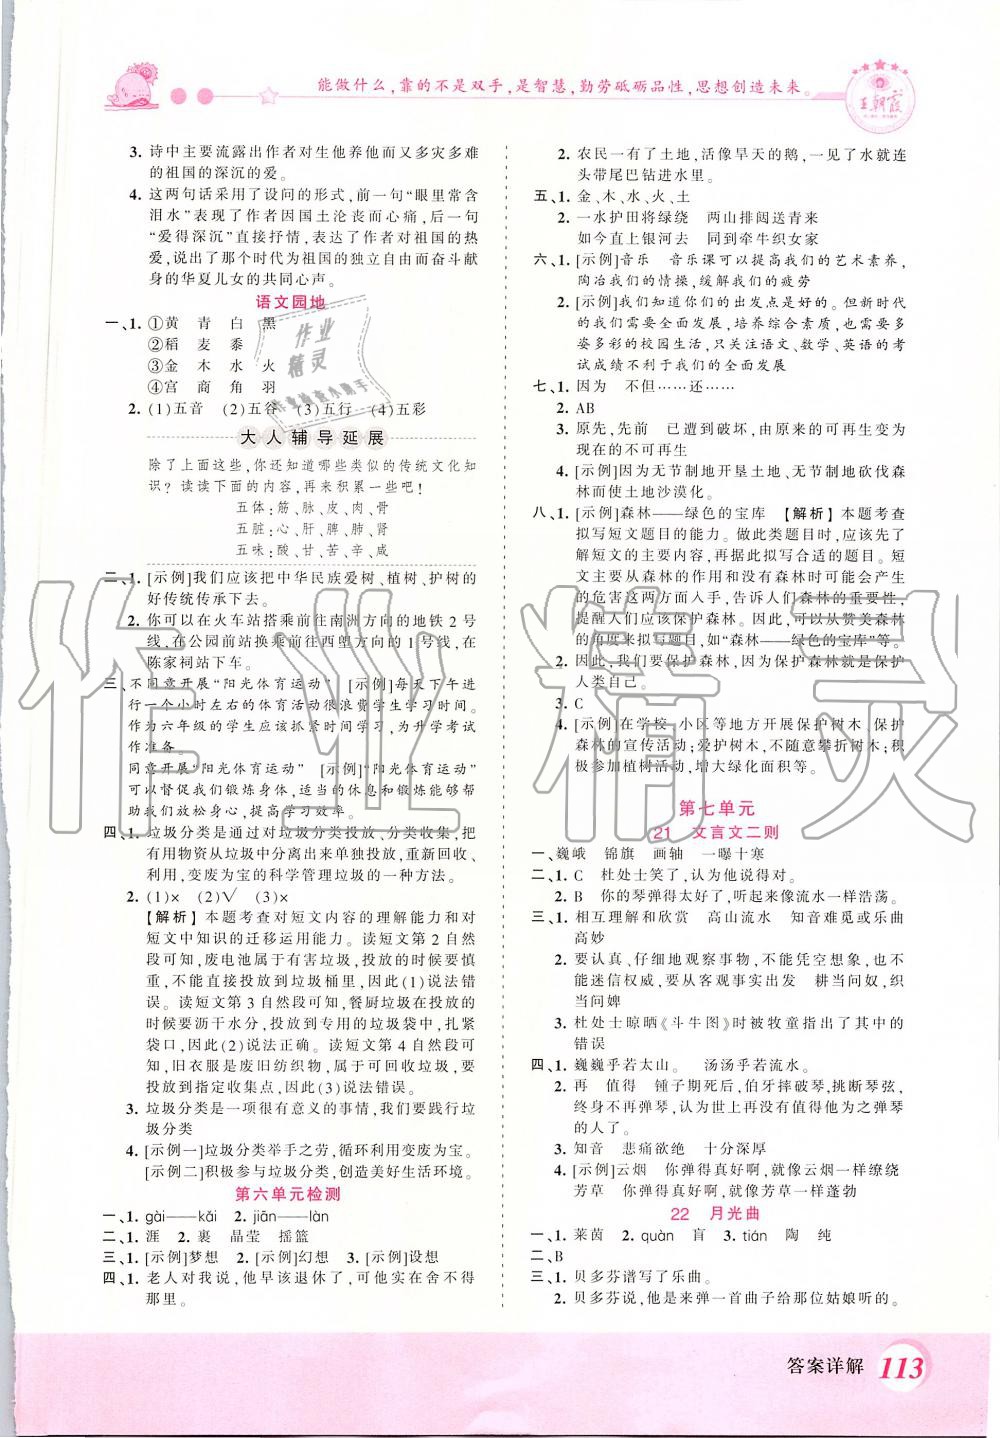 能做什么,靠的不是双手,是智慧,勤劳砥砺品性,思想创造未来。
王朝霞
3. 诗中主要流露出作者对生他养他而又多灾多难
的祖国的深沉的爱。
4. 这两句话采用了设问的形式,前一句“眼里常含
泪水”表现了作者因国土沦丧而心痛,后一句
“爱得深沉”直接抒情,表达了作者对祖国的热
爱,说出了那个时代为祖国的独立自由而奋斗献
身的华夏儿女的共同心声。
语文园地
一、1. ①黄 青 白 黑
②稻 麦 黍
③金 木 水 火
④宫 商 角 羽
2. (1)五音 (2)五谷 (3)五行 (4)五彩
大人辅导延展
除了上面这些,你还知道哪些类似的传统文化知
识？读读下面的内容,再来积累一些吧！
五体:筋、脉、皮、肉、骨
五脏:心、肝、脾、肺、肾
五味:酸、甘、苦、辛、咸
二、1. [示例]我们应该把中华民族爱树、植树、护树的
好传统传承下去。
2. 你可以在火车站搭乘前往南洲方向的地铁2号
线,在公园前站换乘前往西塱方向的1号线,在
陈家祠站下车。
三、不同意开展“阳光体育运动” [示例]每天下午进
行一个小时左右的体育活动很浪费学生学习时间。
作为六年级的学生应该抓紧时间学习,为升学考试
作准备。
同意开展“阳光体育运动” [示例]“阳光体育运动”
可以督促我们锻炼身体,适当的休息和锻炼能够帮
助我们放松身心,提高学习效率。
四、1. 垃圾分类是通过对垃圾分类投放、分类收集,把
有用物资从垃圾中分离出来单独投放,重新回收、
利用,变废为宝的科学管理垃圾的一种方法。
2. (1)× (2)√ (3)×
【解析】本题考查对短文内容的理解能力和对
短文中知识的迁移运用能力。读短文第2自然
段可知,废电池属于有害垃圾,投放的时候要投
放,不能直接投放到垃圾桶里,因此(1)说法错
误。读短文第3自然段可知,餐厨垃圾在投放的
时候要沥干水分,投放到专用的垃圾袋中,扎紧
袋口,因此(2)说法正确。读短文第4自然段可
知,旧衣服是废旧纺织物,属于可回收垃圾,要
投放到指定收集点,因此(3)说法错误。
3. 垃圾分类是一项很有意义的事情,我们要践行垃
圾分类
4. [示例一]垃圾分类举手之劳,循环利用变废为宝。
[示例二]积极参与垃圾分类,创造美好生活环境。
第六单元检测
一、1. gài——kǎi 2. jiān——làn
二、1. 涯 2. 裹 晶莹 摇篮
三、1. [示例]梦想 2. [示例]幻想 3. [示例]设想
四、1. 老人对我说,他早该退休了,可他实在舍不得
那里。
2. 农民一有了土地,活像旱天的鹅,一见了水就连
头带尾巴钻进水里。
五、1. 金、木、水、火、土
2. 一水护田将绿绕 两山排闼送青来
如今直上银河去 同到牵牛织女家
六、1. [示例]音乐 音乐课可以提高我们的艺术素养,
陶冶我们的情操,缓解我们的疲劳
2. [示例]我们知道你们的出发点是好的。但新时代
的我们需要全面发展,培养综合素质,也需要多
姿多彩的校园生活,只关注语文、数学、英语的考
试成绩不利于我们的全面发展
七、1. 因为 不但……还……
2. AB
3. 原先,先前 已遭到破坏,由原来的可再生变为
现在的不可再生
4. [示例]因为无节制地开垦土地、无节制地砍伐森
林而使土地沙漠化。
八、1. [示例]森林——绿色的宝库 【解析】本题考查
拟写短文题目的能力。做此类题时,应该先了
解短文的主要内容,再据此拟写合适的题目。短
文主要从森林的作用和没有森林可能会产生
的危害这两方面入手,告诉人们森林的重要性,
提醒人们应该保护森林。因此,可以从赞美森林
的角度来拟写题目,如“森林——绿色的宝库”等。
2. 因此,我们要保护森林,因为保护森林就是保护
人类自己。
3. C
4. [示例]在学校、小区等地方开展保护树木、保护
森林的宣传活动;爱护树木,不随意攀折树木;积
极参加植树活动,增大绿化面积等。
第七单元
21 文言文二则
一、巍峨 锦旗 画轴 一曝十寒
二、1. C 杜处士笑了,认为他说得对。
2. B 你的琴弹得太好了,听起来像流水一样浩荡。
三、1. 相互理解和欣赏 高山流水 知音难觅或乐曲
高妙
2. 要认真、仔细地观察事物,不能凭空想象,也不
能迷信权威,要从客观事实出发 耕当问奴,织
当问婢
3. 杜处士晾晒《斗牛图》时被牧童指出了其中的
错误
四、1. 巍巍乎若太山。 汤汤乎若流水。
2. 再 值得 锺子期死后,伯牙摔破琴,挑断琴弦,
终身不再弹琴,认为世上再没有值得他为之弹琴
的人了。
3. 知音 悲痛欲绝 十分深厚
4. [示例]云烟 你弹得真好啊,就像云烟一样缭绕
芳草 你弹得真好啊,就像芳草一样蓬勃
22 月光曲
一、1. 莱茵 2. quàn 盲 3. tián 陶 纯
二、B
三、1. 贝多芬谱写了乐曲。
2. 贝多芬说,他是来弹一首曲子给那位姑娘听的。
作业精灵
答案详解
113